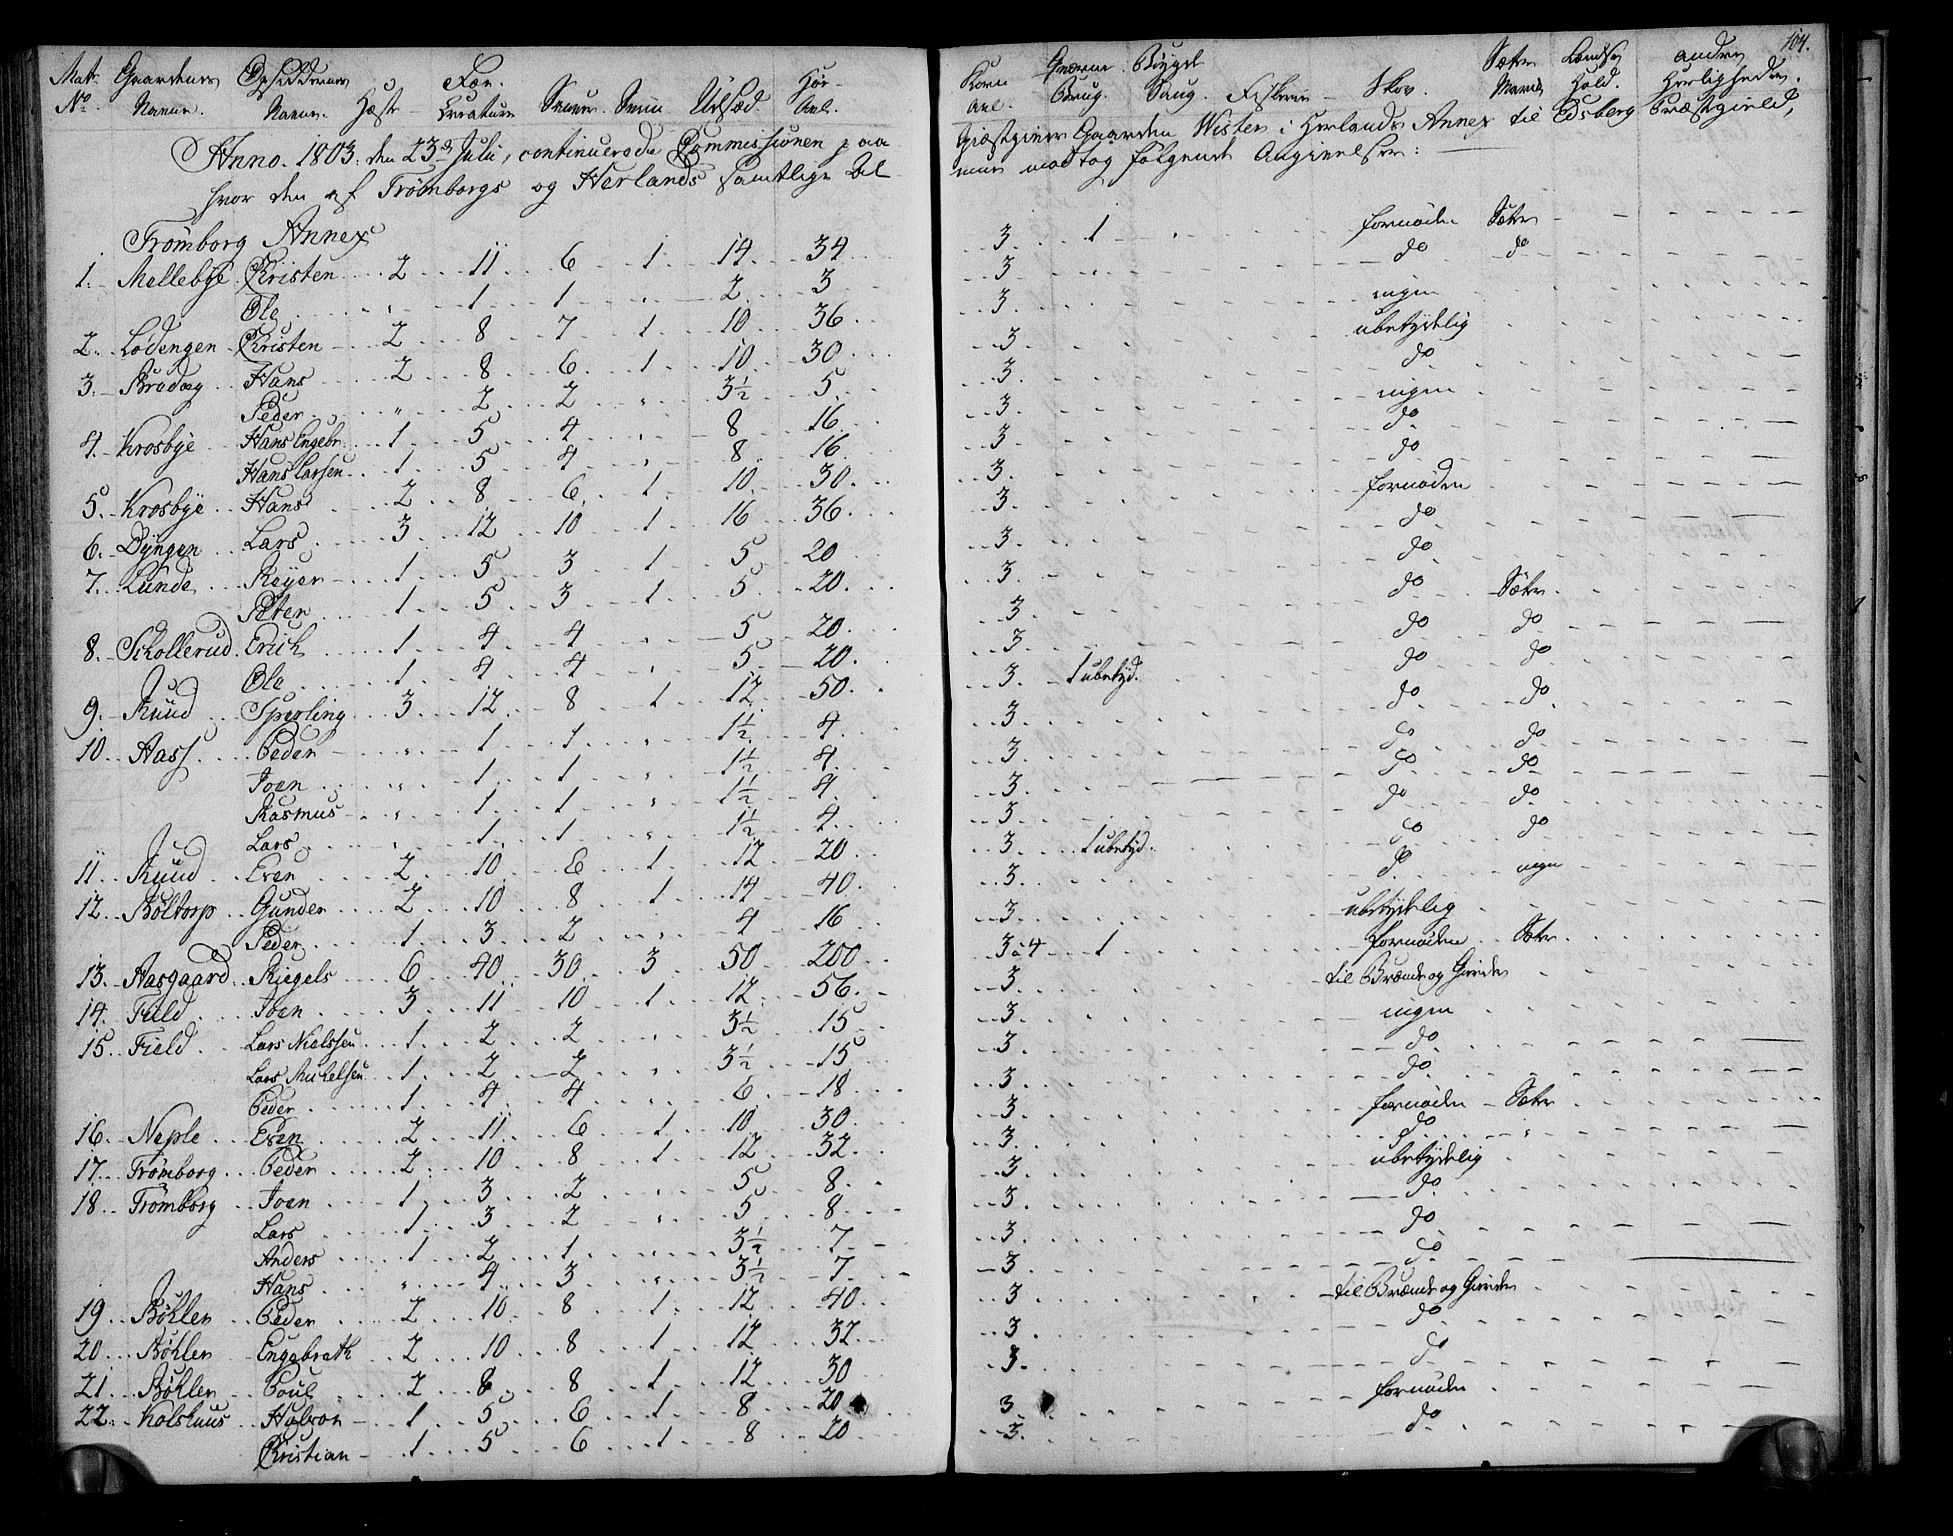 104.
Matr. Gaardenes Opsiddernes Fæe- Høe- Korn Qværne Bøygde Sæter Landse andre
No. Navne. Navne. Hæste Creature Smaaer Sviin Udsæd Avl. Avl. Brug. Saug. Fiskerie Skov. Havn Hold. Herligheder.
Anno 1803. den 23de Julii, continuerede Commissionen paa Giæstgiver Gaarden Wister i Herlands Annex til Edsberg Præstegield,
hvor den af Trømborgs og Herlands samtlige modtog følgende Angivelser:
Trømborg Annex
1. Mellebye Christen 2 11 6 1 14 34 3. 1 fornøden Sæter
Ole " 1 1 " 2 3 3 do do
2. Lodengen Christen 2 8 7 1 10 36 3. ingen
3. Bradag Hans 2 8 6 1 10 30 3. ubetydelig
Peder " 2 2 " 3½ 5 3. do
4. Krosbye Hans Engebr. 1 5 4 " 8 16 3. ingen
Hans Larsen 1 5 4 " 8 16 3 do
5. Krosbye Hans 2 8 6 1 10 30 3. do
6. Dyngen Lars 3 12 10 1 16 36 3. fornøden
7. Lunde Reyer 1 5 3 1 5 20 3. do
Peter 1 5 3 1 5 20 3. do
8. Schollerud Erich 1 4 4 " 5 20 3 do Sæter
Ole 1 4 4 " 5 20 3. do do
9. Ruud Sperling 3 12 8 1 12 50 3. 1 ubetyd. do do
10. Aass Peder " 1 1 " 1½ 4 3. do do
Joen " 1 1 " 1½ 4 3. do do
Rasmus " 1 1 " 1½ 4 3. do do
Lars " 1 1 " 1½ 4 3 do do
11 Ruud Even 2 10 6 1 12 20 3. 1 ubetyd. do do
12. Boltorp Gunder 2 10 8 1 14 40 3. do ingen
Peder 1 3 2 " 4 16 3. ubetydelig
13. Aasgaard Riegels 6 40 30 3 50 200 3 à 4 1 fornøden Sæter
14. Field Joen 3 11 10 1 12 56 3. til Brænde og Gierde
15. Field Lars Nielssen 1 2 2 " 3½ 15 3. ingen
Lars Michelsen 1 2 2 " 3½ 15 3. do
Peder 1 4 4 " 6 18 3. do
16. Neple Even 2 11 6 1 10 30 3. fornøden Sæter
17. Trømborg Peder 2 10 8 1 12 32 3. do "
18 Trømborg Joen 1 3 2 " 5 8 3. ubetydelig
Lars 1 3 2 " 5 8 3. do
Anders 1 2 1 " 3½ 7 3. do
Hans " 4 3 " 3½ 7 3. do
19. Bøhler Peder 2 10 8 1 12 40 3. til Brænde og Gierde
20. Bøhler Engebreth 2 10 8 1 12 32 3. do
21. Bøhler Poul 2 8 8 1 12 30 3. do
22. Kolshuus Halvor 1 5 6 1 8 20 3 fornøden
Christian 1 5 6 1 8 20 3. do